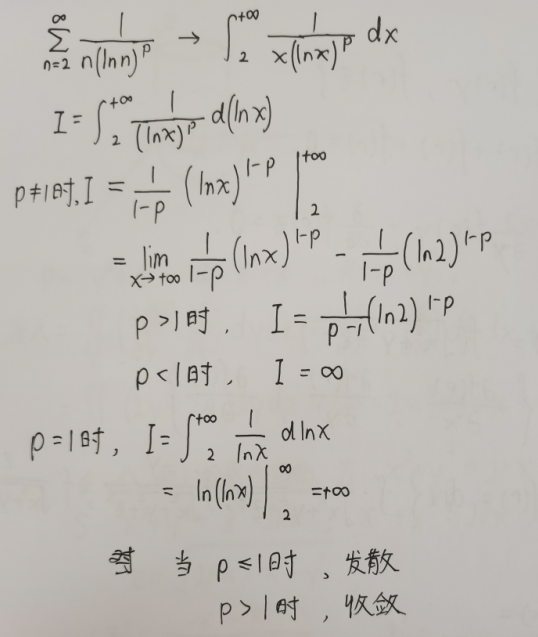 ∑_{n=2}^{∞} 1/(n(ln n)^p) → ∫_2^{+∞} 1/(x(lnx)^p) dx
I = ∫_2^{+∞} 1/(lnx)^p d(lnx)
p≠1时, I = 1/(1-p) (lnx)^{1-p} |_2^{+∞}
= lim_{x→+∞} 1/(1-p) (lnx)^{1-p} - 1/(1-p) (ln2)^{1-p}
p>1时, I = 1/(p-1) (ln2)^{1-p}
p<1时, I = ∞
p=1时, I = ∫_2^{+∞} 1/lnx dlnx
= ln(lnx) |_2^∞ =+∞
当 p≤1时, 发散
p>1时, 收敛